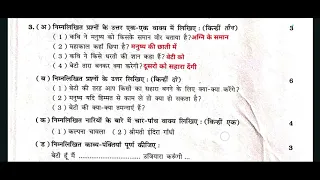 3. (अ) निम्नलिखित प्रश्नों के उत्तर एक-एक वाक्य में लिखिए : (किन्हीं तीन) 3
(1) कवि ने मनुष्य को किसके समान वीर बताया है? अग्नि के समान
(2) महाकाल कहाँ छिपा है? मनुष्य की छाती में
(3) कवि ने किसे धरती की शान कहा हैं? बेटी को
(4) बेटी तारा बनकर क्या करेगी? दूसरों को सहारा देंगी
(ब) निम्नलिखित प्रश्नों के उत्तर लिखिए : (किन्हीं दो) 6
(1) बेटी की तरह आप किसी का सहारा बनने के लिए क्या-क्या करेंगे?
(2) मनुष्य यदि हिम्मत से काम ले तो क्या-क्या कर सकता है?
(3) बेटी की क्या-क्या तमन्नाएँ हैं?
(क) निम्नलिखित नारियों के बारे में चार-पाँच वाक्य लिखिए : (किन्हीं एक) 4
(1) कल्पना चावला (2) श्रीमती इंदिरा गाँधी
(ड) निम्नलिखित काव्य-पंक्तियाँ पूर्ण कीजिए : 3
बेटी हूँ मैं उजियारा करूंगी